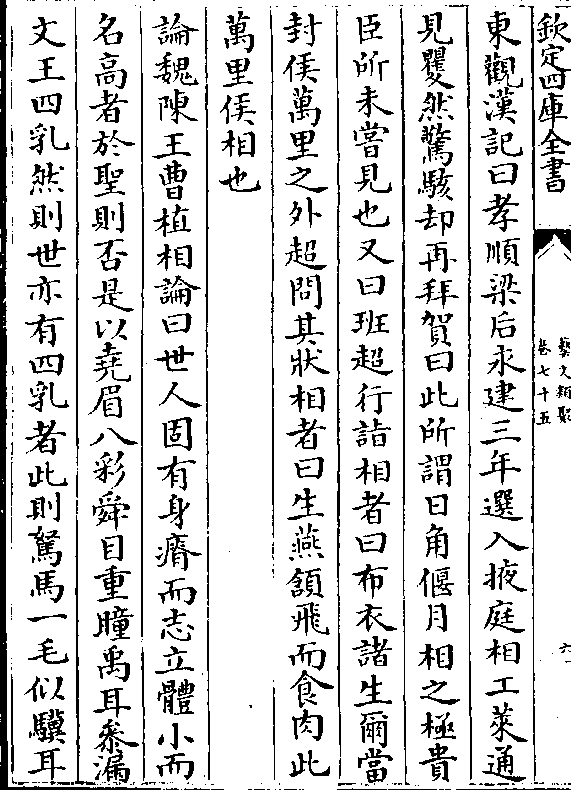 欽定四庫全書
藝文類聚
卷七十五
六
東觀漢記曰孝順梁后永建三年選入掖庭相工萊通
見矍然驚駭却再拜賀曰此所謂日角偃月相之極貴
臣所未嘗見也又曰班超行詣相者曰布衣諸生爾當
封侯萬里之外超問其狀相者曰生燕頷飛而食肉此
萬里侯相也
論魏陳王曹植相論曰世人固有身瘠而志立體小而
名高者於聖則否是以堯眉八彩舜目重瞳禹耳叅漏
文王四乳然則世亦有四乳者此則駑馬一毛似驥耳